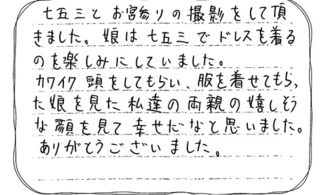 七五三とお宮参りの撮影をして頂
きました。娘は七五三でドレスを着る
のを楽しみにしていました。
カワイク頭をしてもらい、服を着せてもらっ
た娘を見た私達の両親の嬉しそう
な顔を見て幸せだなと思いました。
ありがとうございました。